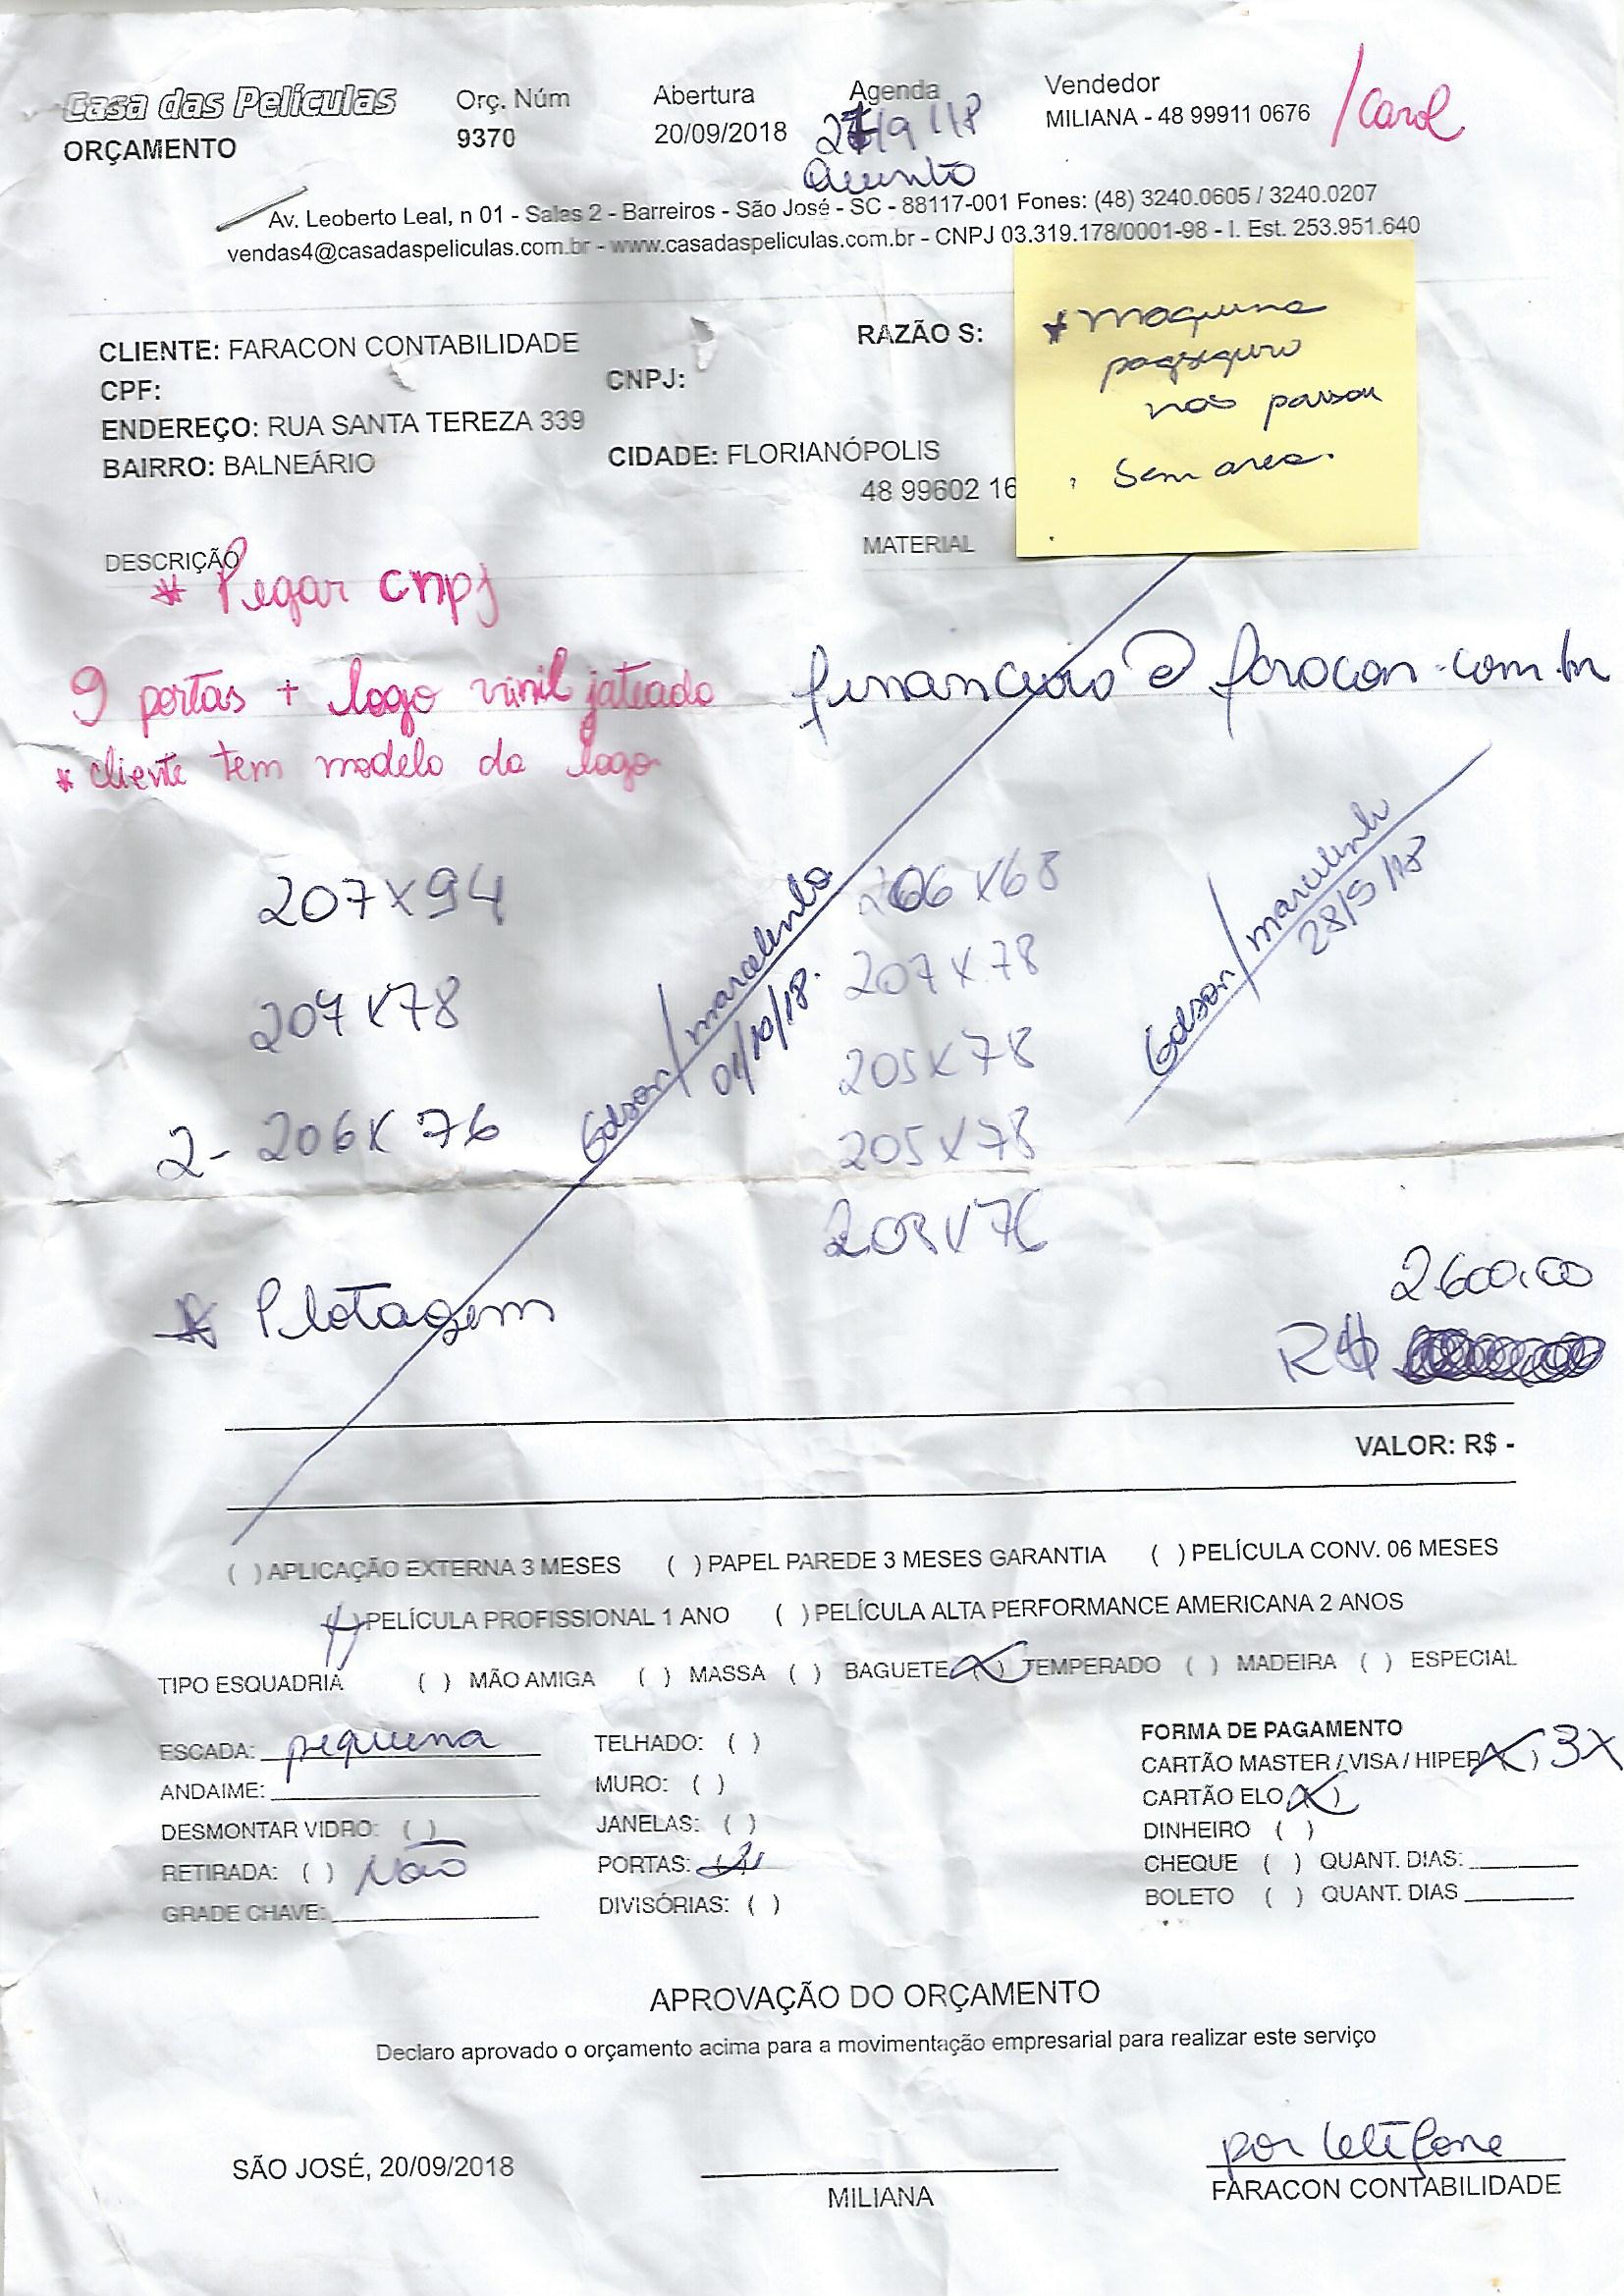 Casa das Películas
ORÇAMENTO
Orç. Núm
9370
Abertura
20/09/2018
Agenda
27/9/18
Vendedor
MILIANA - 48 99911 0676
/Carol
Av. Leoberto Leal, n 01 - Salas 2 - Barreiros - São José - SC - 88117-001 Fones: (48) 3240.0605 / 3240.0207
vendas4@casadaspeliculas.com.br - www.casadaspeliculas.com.br - CNPJ 03.319.178/0001-98 - I. Est. 253.951.640
CLIENTE: FARACON CONTABILIDADE
RAZÃO S:
CPF:
CNPJ:
ENDEREÇO: RUA SANTA TEREZA 339
BAIRRO: BALNEÁRIO
CIDADE: FLORIANÓPOLIS
48 99602 16
* Maquina
pagseguro
não passou
sem area.
DESCRIÇÃO
MATERIAL
* Pegar cnpj
9 portas + logo vinil jateado
financeiro@faracon.com.br
* cliente tem modelo da logo
207x94
206x68
207x78
207x78
205x78
2- 206x76
205x78
203x76
Edson/marcelinho
01/10/18.
Edson/marcelinho
28/9/18
* Plotagem
2600,00
R$
VALOR: R$ -
( ) APLICAÇÃO EXTERNA 3 MESES ( ) PAPEL PAREDE 3 MESES GARANTIA ( ) PELÍCULA CONV. 06 MESES
(X) PELÍCULA PROFISSIONAL 1 ANO ( ) PELÍCULA ALTA PERFORMANCE AMERICANA 2 ANOS
TIPO ESQUADRIA ( ) MÃO AMIGA ( ) MASSA ( ) BAGUETE (X) TEMPERADO ( ) MADEIRA ( ) ESPECIAL
ESCADA: pequena
ANDAIME:
DESMONTAR VIDRO: ( )
RETIRADA: ( ) Não
GRADE CHAVE:
TELHADO: ( )
MURO: ( )
JANELAS: ( )
PORTAS: (X)
DIVISÓRIAS: ( )
FORMA DE PAGAMENTO
CARTÃO MASTER / VISA / HIPER (X) 3X
CARTÃO ELO (X)
DINHEIRO ( )
CHEQUE ( ) QUANT. DIAS:
BOLETO ( ) QUANT. DIAS
APROVAÇÃO DO ORÇAMENTO
Declaro aprovado o orçamento acima para a movimentação empresarial para realizar este serviço
SÃO JOSÉ, 20/09/2018
MILIANA
por telefone
FARACON CONTABILIDADE